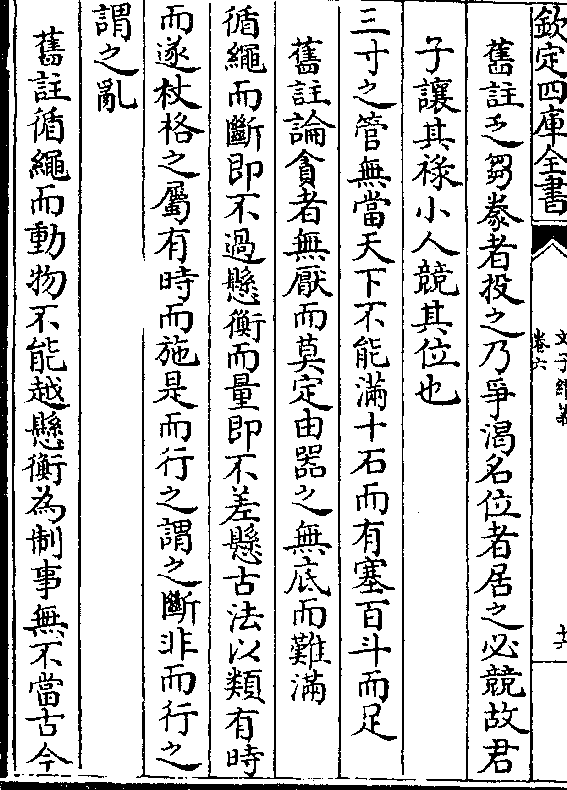 欽定四庫全書
文子纘義
卷六
舊註乏芻豢者投之乃爭渴名位者居之必競故君
子讓其祿小人競其位也
三寸之管無當天下不能滿十石而有塞百斗而足
舊註論貪者無厭而莫定由器之無底而難滿
循繩而斷即不過懸衡而量即不差懸古法以類有時
而遂杖格之屬有時而施是而行之謂之斷非而行之
謂之亂
舊註循繩而動物不能越懸衡為制事無不當古今